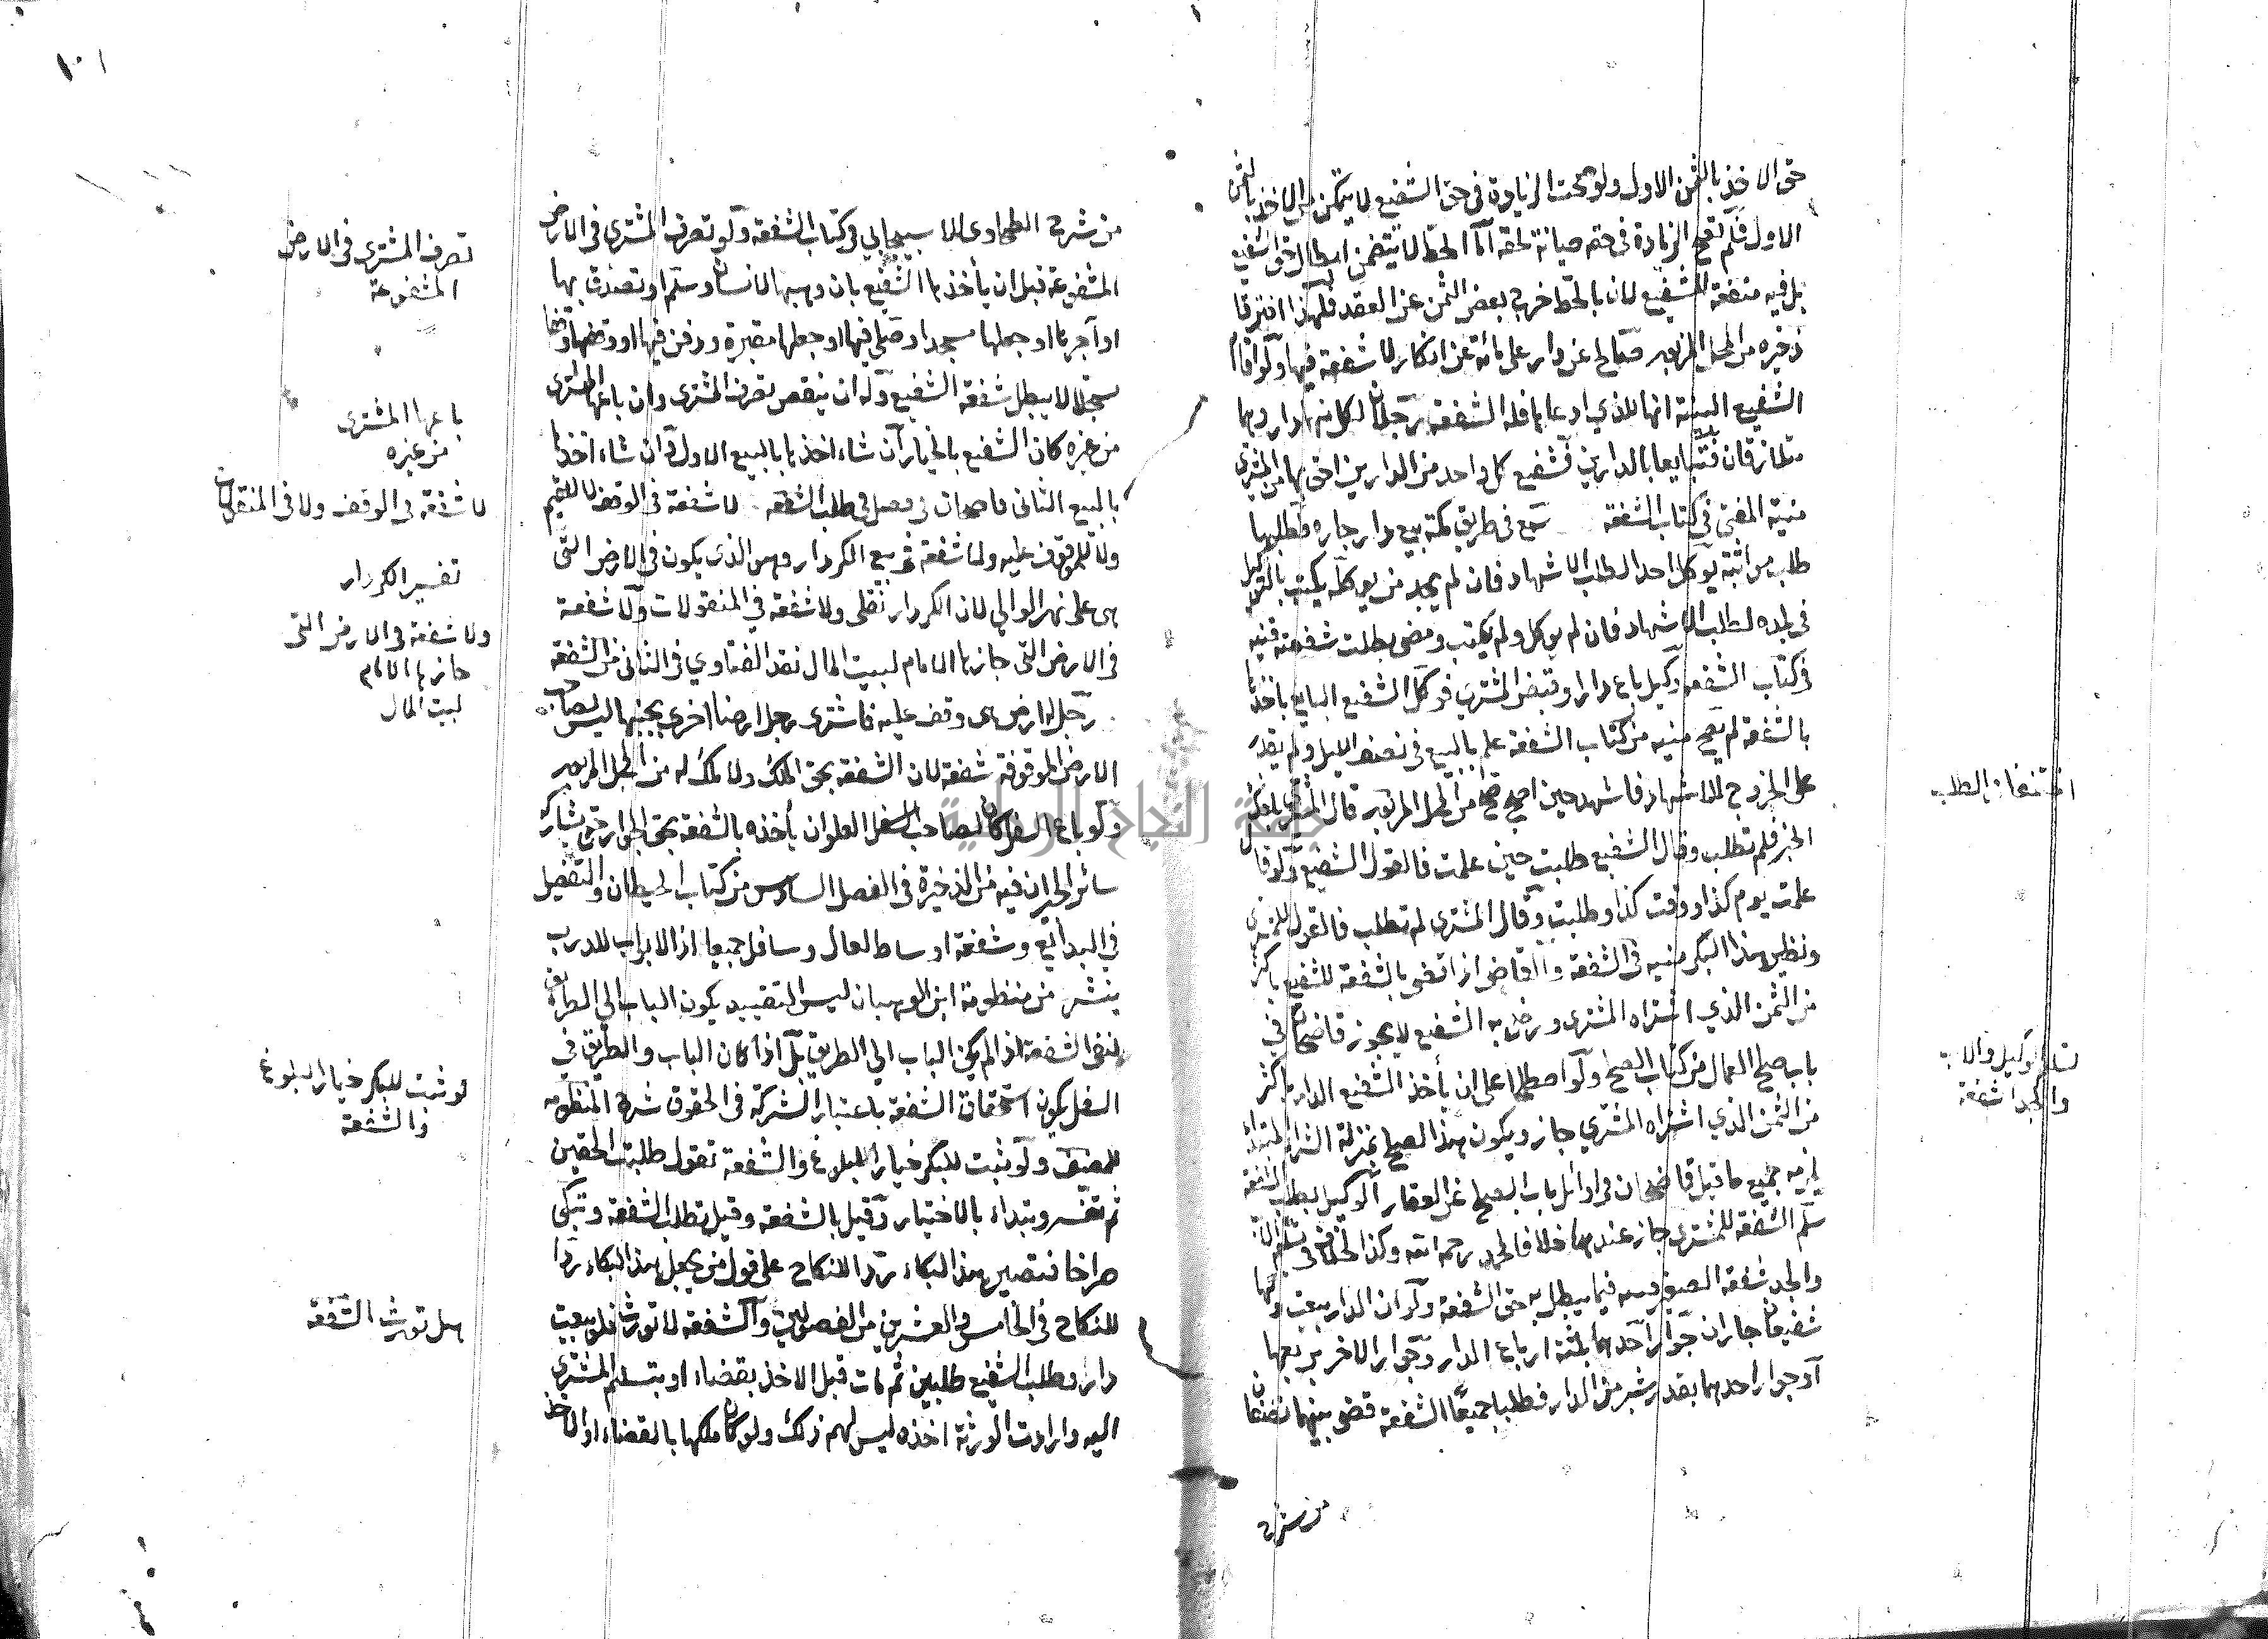 حق الاخذ بالثمن الاول ولو صحت الزيادة في حق الشفيع لا يتمكن من الاخذ بالثمن
الاول فلم تصح الزيادة في حقه صيانة لحقه اما الحط لا يتضمن ابطال حق الشفيع
بل فيه منفعة للشفيع لان بالحط خرج بعض الثمن عن العقد فلهذا افترقا
ذخيره من المحل المزبور صالح عن دار على مائة عن انكار لا شفعة فيها ولو اقام
الشفيع البينة انها للذي ادعاها فله الشفعة رجلان لكل منهما دار وهما
متلازقان فتبايعا بالدارين فشفيع كل واحد من الدارين احق بها من المشتري
منية المفتي في كتاب الشفعة سمع في طريق مكة بيع دار جاره فطلبها
طلب مواثبة يوكل احدا لطلب الاشهاد فان لم يجد من يوكله يكتب بالتوكيل
في بلده لطلب الاشهاد فان لم يوكل ولم يكتب ومضى بطلت شفعته قنيه
في كتاب الشفعه وكيل باع دارا وقبض المشتري فوكل الشفيع البايع باخذها
بالشفعة لم يصح منيه من كتاب الشفعة علم بالبيع في نصف الليل ولم يقدر
على الخروج للاشهاد فاشهد حين اصبح صح من المحل المزبور قال المشتري بلغك
الخبر فلم تطلب وقال الشفيع طلبت حين علمت فالقول للشفيع ولو قال
علمت يوم كذا ووقت كذا وطلبت وقال المشتري لم تطلب فالقول للمشتري
ونظير هذا البكر منيه في الشفعة والقاضي اذا قضى بالشفعة للشفيع باكثر
من الثمن الذي اشتراه المشتري ورضي به الشفيع لا يجوز قاضيخان في
باب صلح العمال من كتاب الصلح ولو اصطلحا على ان يأخذ الشفيع الدار باكثر
من الثمن الذي اشتراه المشتري جاز ويكون هذا الصلح بمنزلة الشراء المبتدأ
جميع ما قبل قاضيخان في اوائل باب الصلح عن العقار الوكيل بطلب الشفعة
سلم الشفعة للمشتري جاز عندهما خلافا لمحمد رحمه الله وكذا الخلاف في تسليم الاب
والجد شفعة الصغير فيما يبطل به حق الشفعة ولو ان الدار بيعت ولها
شفيعان جاران جوار احدهما بثلثة ارباع الدار وجوار الاخر بربعها
او جوار احدهما بقدر شبر من الدار فطلبا جميعا الشفعة قضى بينهما نصفان
من شرح
اختلفا في الطلب
تسليم الوكيل والاب
والجد شفعة
١٠١
من شرح الطحاوي للاسبيجابي في كتاب الشفعة ولو تصرف المشتري في الارض
المشفوعة قبل ان يأخذها الشفيع بان وهبها لانسان وسلم او تصدق بها
او آجرها او جعلها مسجدا وصلي فيها او جعلها مقبرة ودفن فيها او وقفها وقفا
مسجلا لا يبطل شفعة الشفيع وله ان ينقض تصرف المشتري وان باعها المشتري
من غيره كان الشفيع بالخيار ان شاء اخذها بالبيع الاول وان شاء اخذها
بالبيع الثاني قاضيخان في فصل في طلب الشفعة لا شفعة في الوقف لا للقيم
ولا للموقوف عليه ولا شفعة في بيع الكردار وهو الذي يكون في الارض التي
هي على نهر الوالي لان الكردار نقلي ولا شفعة في المنقولات ولا شفعة
في الارض التي حازها الامام لبيت المال نقد الفتاوي في الثاني من الشفعة
رجل له ارض هي وقف عليه فاشترى رجل ارضا اخرى بجنبها ليس لصاحب
الارض الموقوفة شفعة لان الشفعة بحق الملك ولا ملك له من المحل المزبور
ولو باع السفل كان لصاحب العلو ان يأخذه بالشفعة بحق الجوار حتى يشارك
سائر الجيران فيه من الذخيرة في الفصل السادس من كتاب الحيطان والتفصيل
في البدائع وشفعة اوساط لعال وسافل جميعا اذ الابواب للدرب
ينشر من منظومة ابن الوهبان ليس التقييد بكون الباب الى الطريق
لنفي الشفعة اذا لم يكن الباب الى الطريق بل اذا كان الباب والطريق في
السفل يكون استحقاق الشفعة باعتبار الشركة في الحقوق شرح المنظومه
للمصنف ولو ثبت للبكر خيار البلوغ والشفعة تقول طلبت الحقين
ثم تفسر وتبداء بالاختيار وقيل بالشفعة وقيل تطلب الشفعة وتبكي
صراخا فتصير بهذا البكاء ردا للنكاح على قول من يجعل هذا البكاء ردا
للنكاح في الخامس والعشرين من الفصولين والشفعة لا تورث فلو بيعت
دار وطلب الشفيع طلبين ثم مات قبل الاخذ بقضاء او بتسليم المشتري
اليه وارادت الورثة اخذه ليس لهم ذلك ولو كان ملكها بالقضاء او الاخذ
تصرف المشتري في الارض
المشفوعة
باعها المشتري
من غيره
لا شفعة في الوقف ولا في المنقولات
تفسير الكردار
ولا شفعة في الارض التي
حازها الامام
لبيت المال
لو ثبت للبكر خيار البلوغ
والشفعة
هل تورث الشفعة
جامعة النجاح الوطنية